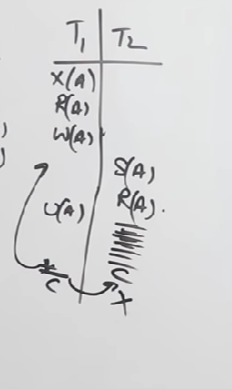 T1 T2
X(A)
R(A)
W(A)
S(A)
R(A).
U(A)
C
C